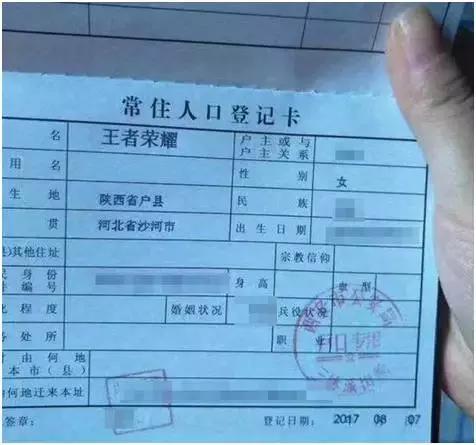 常住人口登记卡
名 王者荣耀 户主或与户主关系
用名 性别 女
生地 陕西省户县 民族
贯 河北省沙河市 出生日期
其他住址 宗教信仰
身份
编号 身高 血型
程度 婚姻状况 兵役状况
务处所 职业
由何地
本市(县)
何地迁来本址
签章: 登记日期: 2017 08 07